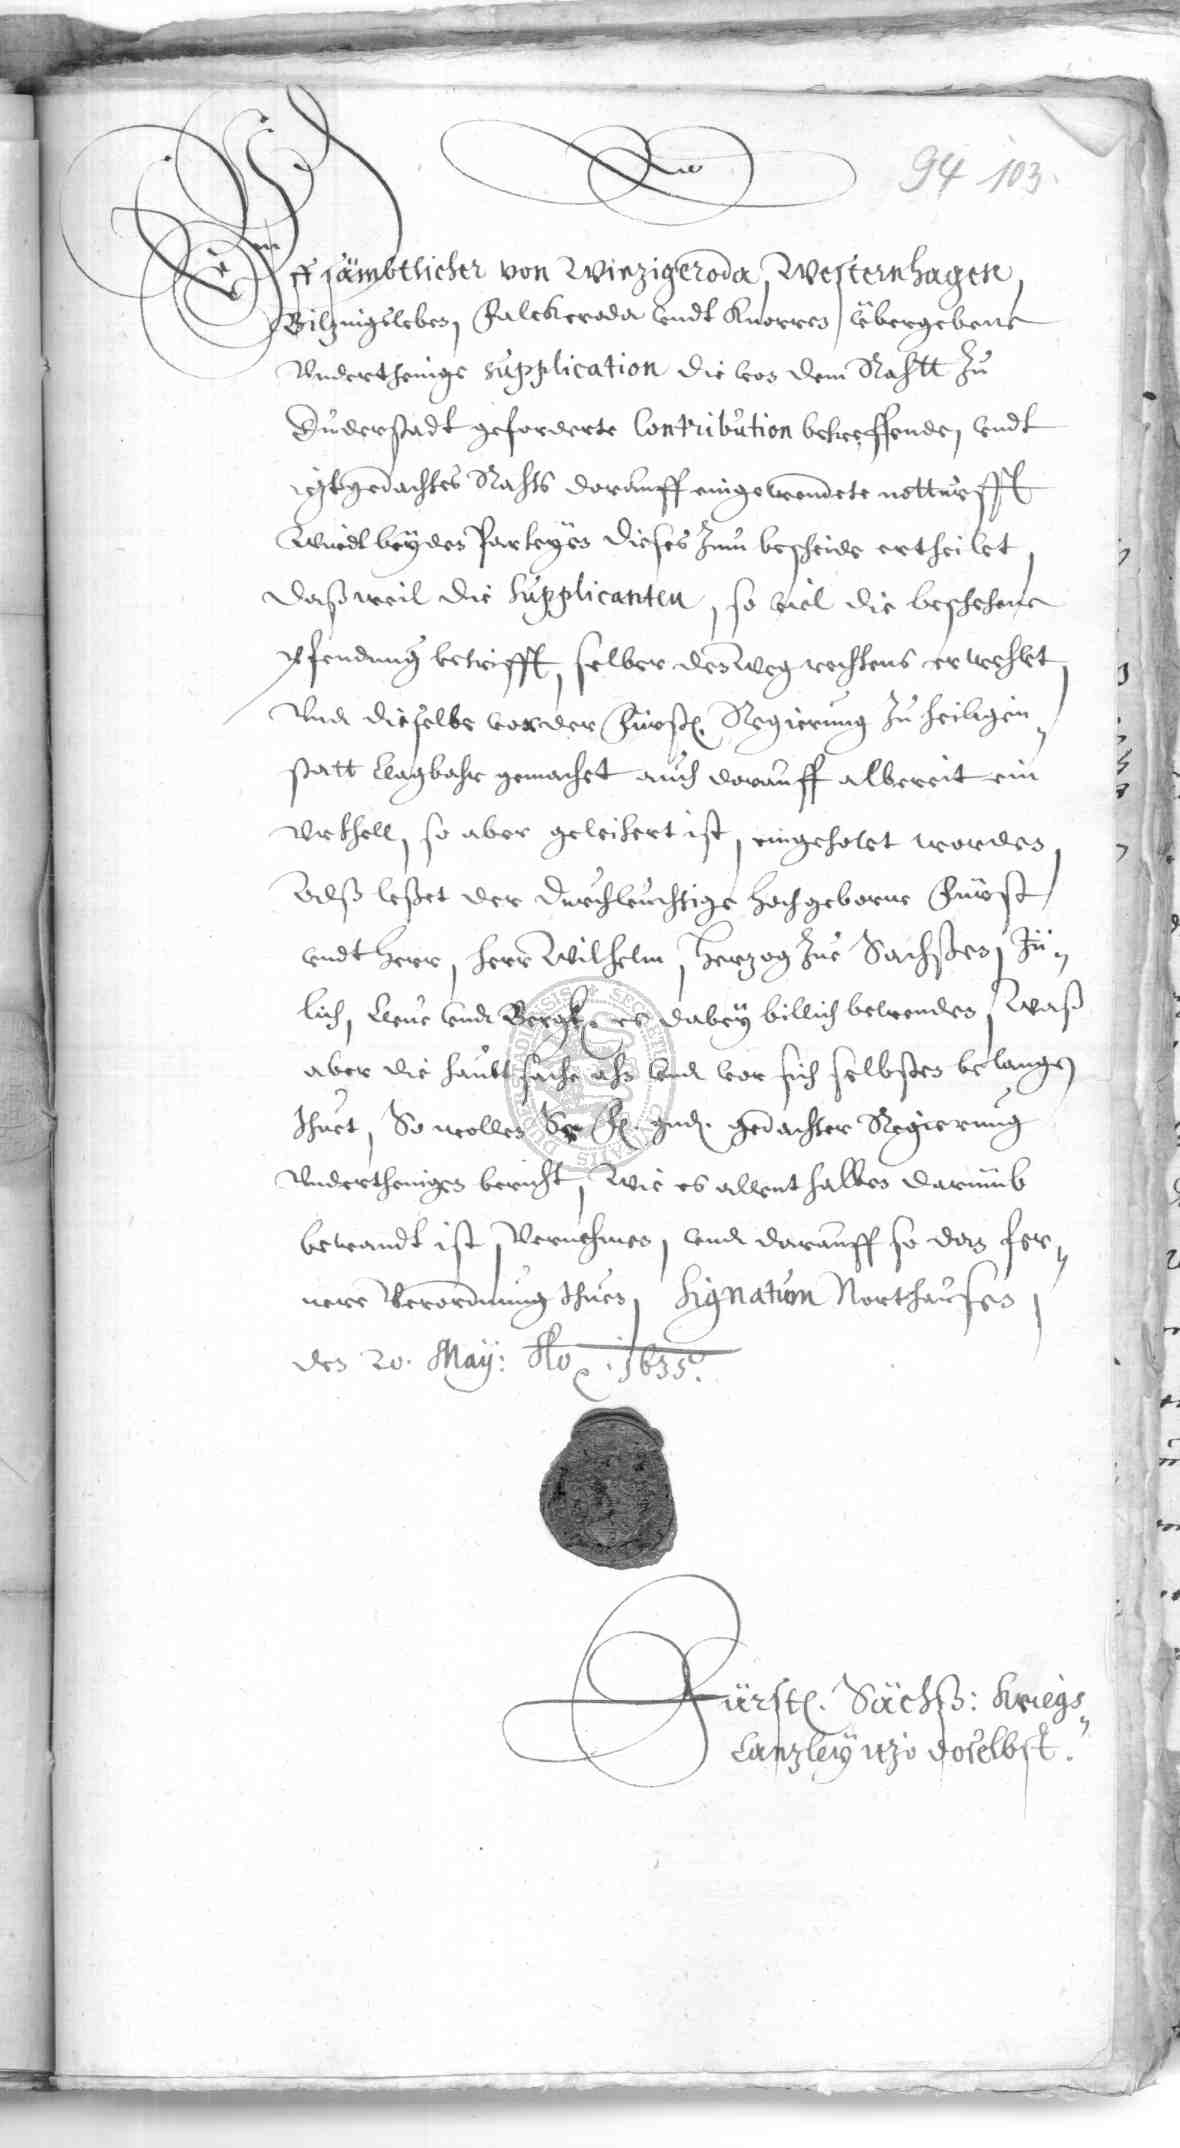 94 103.
Vff sämbtlicher von Winzigeroda, Westernhagen,
Bilzingsleben, Falckeroda vndt Knorren, übergebene
Vnderthenige supplication die von dem Rahtt zu
Duderstadt geforderte Contribution betreffende, vndt
itztgedachtes Rahts darauff eingewendete notturfft
Wirdt beyden Parteyen dieses zum bescheide ertheilet,
Daß weil die Supplicanten, so viel die beschehene
Pfendung betrifft, selber den Weg rechtens erwehlet,
Vnd dieselbe vor der Fürstl. Regierung zu Heiligen-
statt klagbahr gemachet auch darauff albereit ein
Vrthell, so aber geleitert ist, eingeholet worden,
Alß leßet der Durchleuchtige Hochgeborne Fürst
vndt Herr, Herr Wilhelm, Herzog zue Sachßen, Jü-
lich, Cleve vnd Bergk. es dabey billich bewenden, Waß
aber die haubtsache ahn vnd vor sich selbsten belangen
thuet, So wollen Se. Fl. gnd. gedachter Regierung
Vnderthenigen bericht, Wie es allenthalben darumb
bewandt ist, Vernehmen, vnd darauff so dan fer-
nere Verordnung thuen, Signatum Northausen,
den 20. May: Ao. 1635.
Fürstl. Sächß: Kriegs-
Canzley itzo doselbst.